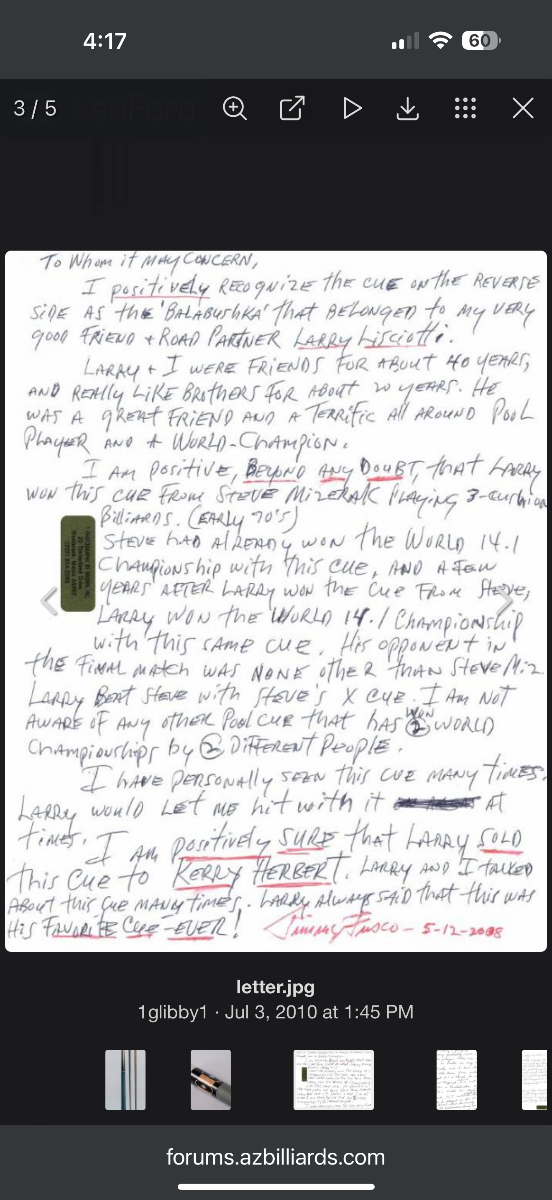 4:17
60
3 / 5
To Whom it May Concern,
I positively Recognize the cue on the Reverse
side as the 'Balabushka' that belonged to my very
good Friend + Road Partner Larry Lisciotti.
Larry + I were Friends for about 40 years,
and Really like Brothers for about 20 years. He
was a great Friend and a terrific all around Pool
Player and a World-Champion.
I am positive, Beyond any Doubt, that Larry
won this cue from Steve Mizerak playing 3-cushion
Billiards. (Early 70's)
Steve had already won the World 14.1
Championship with this cue, and a few
years after Larry won the cue from Steve,
Larry won the World 14.1 Championship
with this same cue. His opponent in
the final match was none other than Steve Miz.
Larry Beat Steve with Steve's X cue. I am not
aware of any other Pool cue that has won 2 World
Championships by 2 Different People.
I have personally seen this cue many times.
Larry would let me hit with it at
times. I am positively sure that Larry sold
this cue to Kerry Herbert. Larry and I talked
about this cue many times. Larry always said that this was
His Favorite Cue-Ever! Jimmy Fusco - 5-12-2008
letter.jpg
1glibby1 · Jul 3, 2010 at 1:45 PM
forums.azbilliards.com